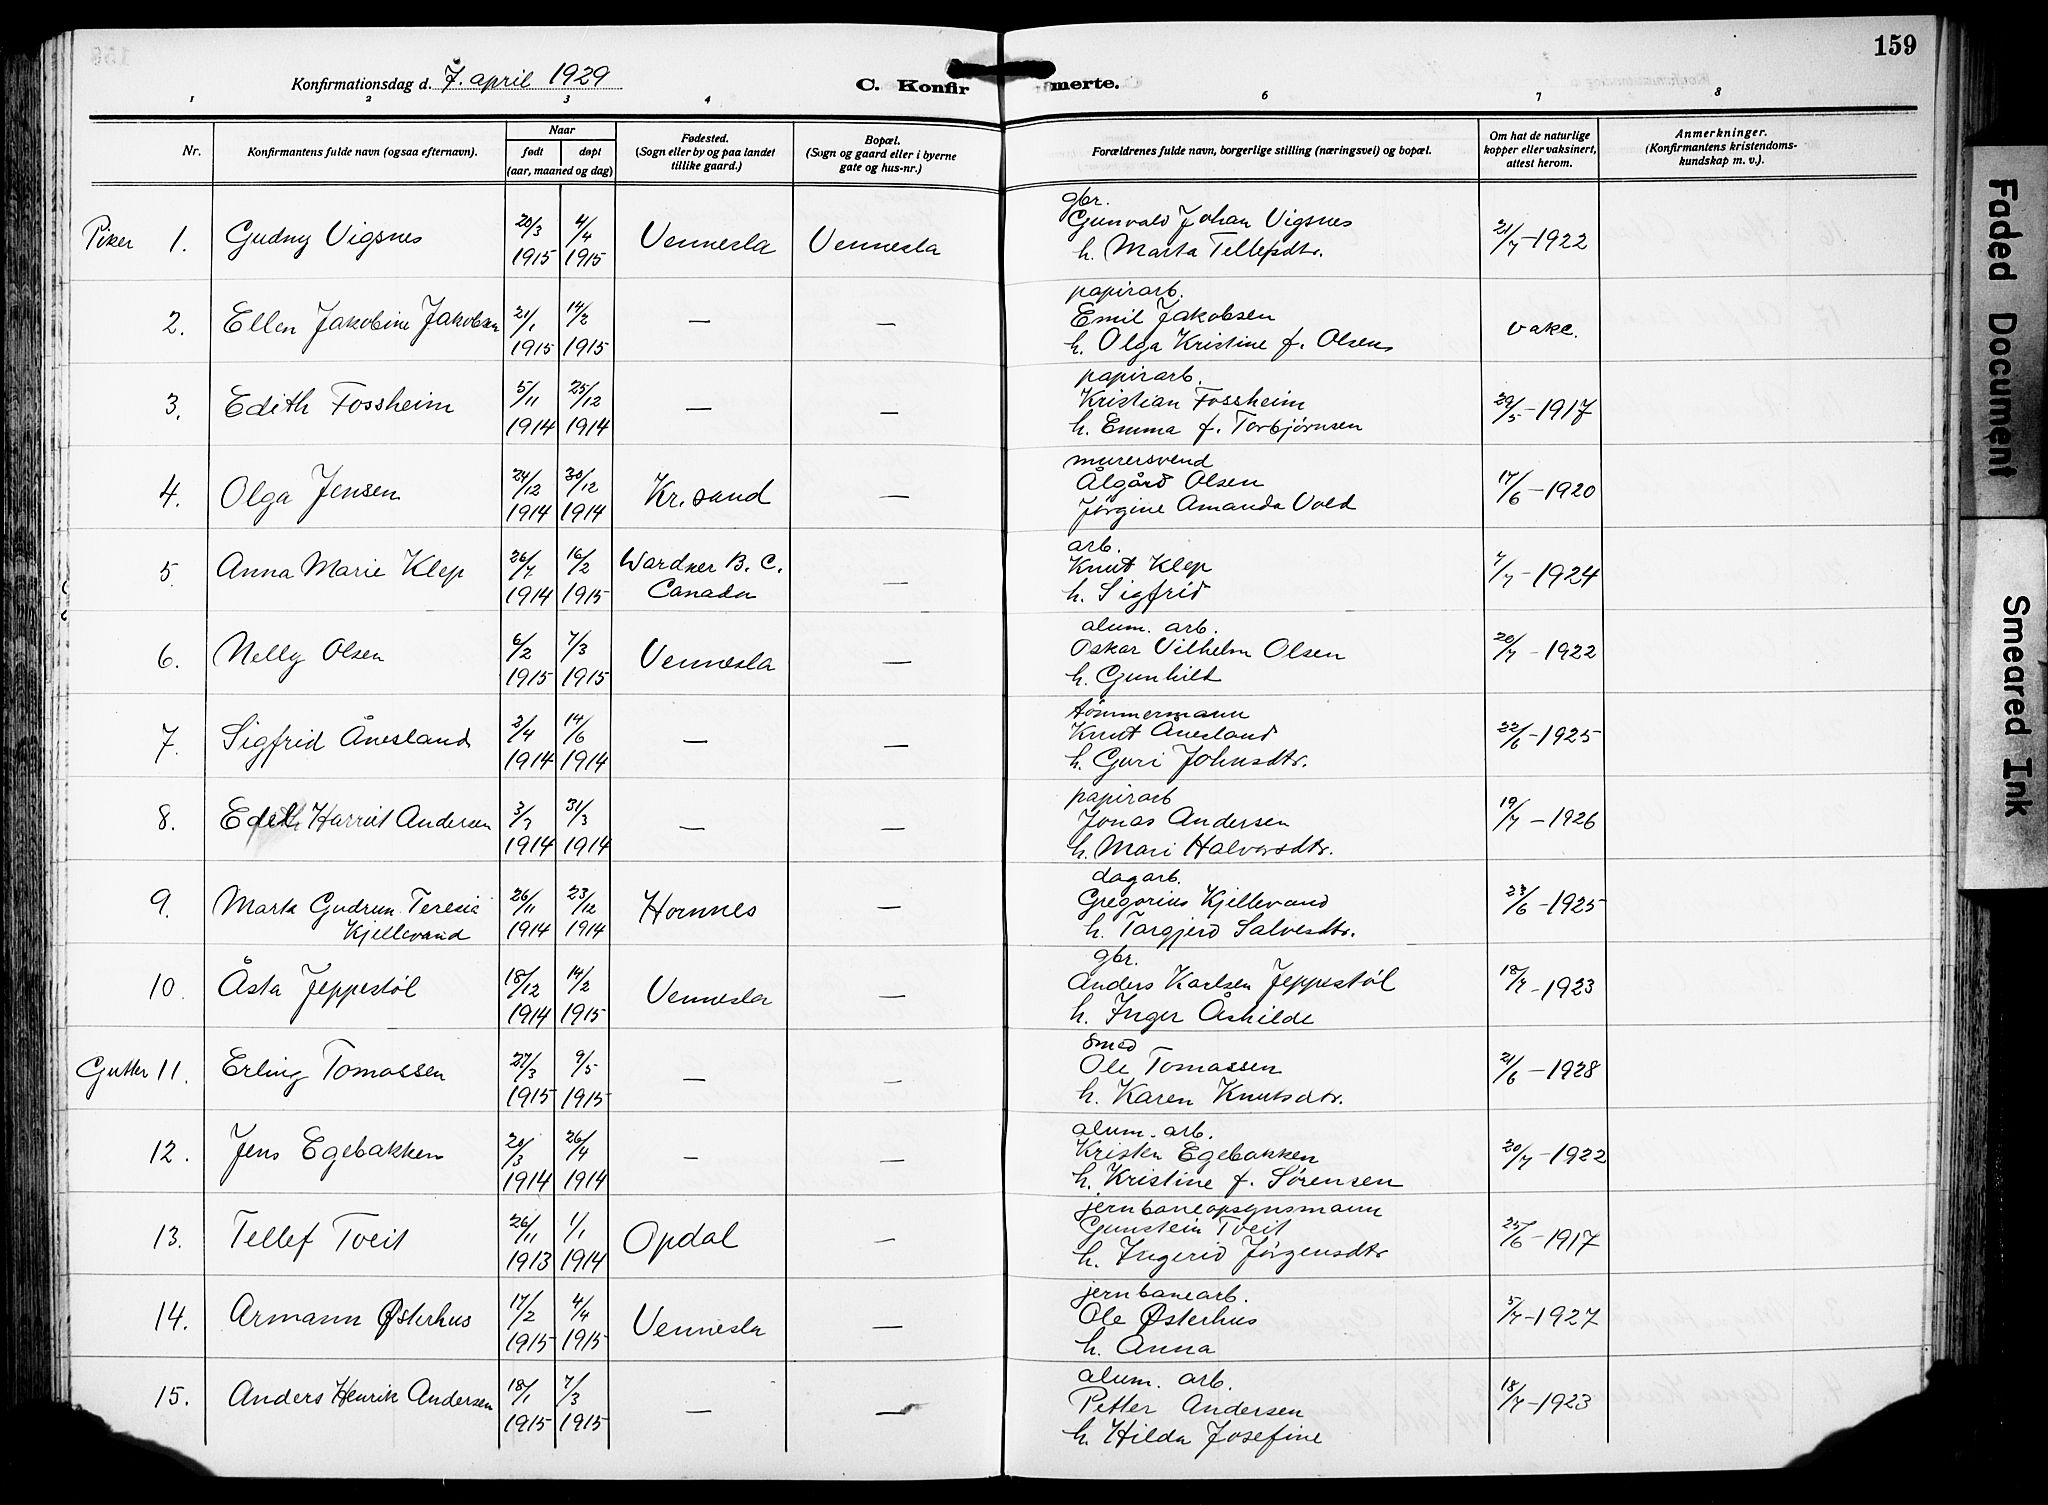 159
Konfirmationsdag d. 7. april 1929
C. Konfirmerte.
1 2 3 4 5 6 7 8
Nr.
Konfirmantens fulde navn (ogsaa efternavn).
Naar
født døpt
(aar, maaned og dag)
Fødested.
(Sogn eller by og paa landet
tillike gaard.)
Bopæl.
(Sogn og gaard eller i byerne
gate og hus-nr.)
Forældrenes fulde navn, borgerlige stilling (næringsvei) og bopæl.
Om hat de naturlige
kopper eller vaksinert,
attest herom.
Anmerkninger.
(Konfirmantens kristendoms-
kundskap m. v.).
Piker 1. Gudny Vigsnes 20/3 1915 4/4 1915 Vennesla Vennesla
gbr.
Gunvald Johan Vigsnes
h. Marta Tellefsdtr.
21/7-1922
2. Ellen Jakobine Jakobsen 21/1 1915 14/2 1915 — —
papirarb.
Emil Jakobsen
h. Olga Kristine f. Olsen
vakc.
3. Edith Fossheim 5/11 1914 25/12 1914 — —
papirarb.
Kristian Fossheim
h. Emma f. Torbjørnsen
29/5-1917
4. Olga Jensen 24/12 1914 30/12 1914 Kr.sand —
murersvend
Ålgård Olsen
Jørgine Amanda Vold
17/6-1920
5. Anna Marie Klep 26/7 1914 16/2 1915 Wardner B. C. Canada —
arb.
Knut Klep
h. Sigfrid
7/7-1924
6. Nelly Olsen 6/2 1915 7/3 1915 Vennesla —
alum. arb.
Oskar Vilhelm Olsen
h. Gunhild
20/7-1922
7. Sigfrid Ånesland 2/4 1914 14/6 1914 — —
tømmermann
Knut Ånesland
h. Guri Johnsdtr.
22/6-1925
8. Edith Harriet Andersen 3/3 1914 31/3 1914 — —
papirarb
Jonas Andersen
h. Mari Halvorsdtr.
19/7-1926
9. Marta Gudrun Teresie
Kjellevand 26/11 1914 23/12 1914 Hornnes —
dagarb.
Gregorius Kjellevand
h. Torgjerd Salvesdtr.
23/6-1925
10. Åsta Jeppestøl 18/12 1914 14/2 1915 Vennesla —
gbr.
Anders Karlsen Jeppestøl
h. Inger Åshilde
18/7-1923
Gutter 11. Erling Tomassen 27/3 1915 9/5 1915 — —
smed
Ole Tomassen
h. Karen Knutsdtr.
21/6-1928
12. Jens Egebakken 20/3 1914 26/4 1914 — —
alum. arb.
Kristen Egebakken
h. Kristine f. Sørensen
20/7-1922
13. Tellef Tveit 26/11 1913 1/1 1914 Opdal —
jernbaneopsynsmann
Gunstein Tveit
h. Ingerid Jørgensdtr
25/6-1917
14. Armann Østerhus 17/2 1915 4/4 1915 Vennesla —
jernbanearb.
Ole Østerhus
h. Anna
5/7-1927
15. Anders Henrik Andersen 18/1 1915 7/3 1915 — —
alum. arb.
Petter Andersen
h. Hilda Josefine
18/7-1923
Faded Document
Smeared Ink